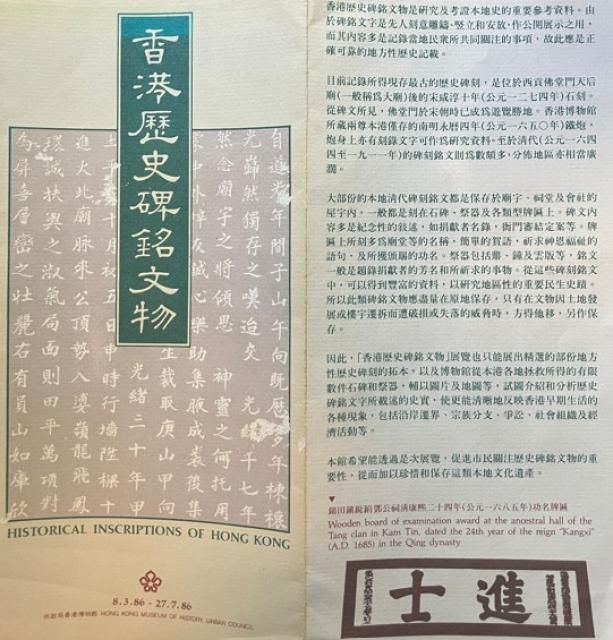 香港歷史碑銘文物
自道光年間子山午向既歷多年棟樑
光巋然獨存之嘆迨交 光緒千七年
然念廟宇之將傾思 神靈之何托用
誠心樂助集腋成裘復集
生裁取庚山甲向
光緒三十年甲
十月初五日申時行墻陞樑
進火北廟脉來公頂勢入 嶺龍飛鳳
誠扶輿之淑氣局面則田平萬頃對
為屏喜層巒之壯麗右有員山如庫欣
HISTORICAL INSCRIPTIONS OF HONG KONG
8.3.86 - 27.7.86
市政局香港博物館 HONG KONG MUSEUM OF HISTORY, URBAN COUNCIL
香港歷史碑銘文物是研究及考證本地史的重要參考資料。由
於碑銘文字是先人刻意雕鑄、竪立和安放，作公開展示之用，
而其內容多是記錄當地民衆所共同關注的事項，故此應是正
確可靠的地方性歷史記載。
目前記錄所得現存最古的歷史碑刻，是位於西貢佛堂門天后
廟(一般稱爲大廟)後的宋咸淳十年(公元一二七四年)石刻。
從碑文所見，佛堂門於宋朝時已成爲遊覽勝地。香港博物館
所藏兩尊本港僅存的南明永曆四年(公元一六五〇年)鐵炮，
炮身上亦有刻錄文字可作爲研究資料。至於清代(公元一六四
四至一九一一年)的碑刻銘文則爲數頗多，分佈地區亦相當廣
濶。
大部份的本地清代碑刻銘文都是保存於廟宇、祠堂及會社的
屋宇內，一般都是刻在石碑、祭器及各類型牌匾上。碑文內
容多是紀念性的叙述，如捐獻者名錄，衙門審結定案等。牌
匾上所刻多爲廟堂等的名稱，簡單的賀語，祈求神恩福祉的
語句，及所獲頒賜的功名。祭器包括鼎、鐘及雲版等，銘文
一般是題錄捐獻者的芳名和所祈求的事物。從這些碑刻銘文
中，可以得到豐富的資料，以研究地區性的重要民生史蹟。
所以此類碑銘文物應盡量在原地保存，只有在文物因土地發
展或樓宇遷拆而遭破損或失落的威脅時，方得他移，另作保
存。
因此，「香港歷史碑銘文物」展覽也只能展出精選的部份地方
性歷史碑刻的拓本，以及博物館從本港各地拯救所得的有限
數件石碑和祭器，輔以圖片及地圖等，試圖介紹和分析歷史
碑銘文字所載述的史實，使更能清晰地反映香港早期生活的
各種現象，包括沿岸遷界、宗族分支、爭訟、社會組織及經
濟活動等。
本館希望能透過是次展覽，促進市民關注歷史碑銘文物的重
要性，從而加以珍惜和保存這類本地文化遺產。
錦田鎮銳鋗鄧公祠清康熙二十四年(公元一六八五年)功名牌匾
Wooden board of examination award at the ancestral hall of the
Tang clan in Kam Tin, dated the 24th year of the reign "Kangxi"
(A.D. 1685) in the Qing dynasty
進士